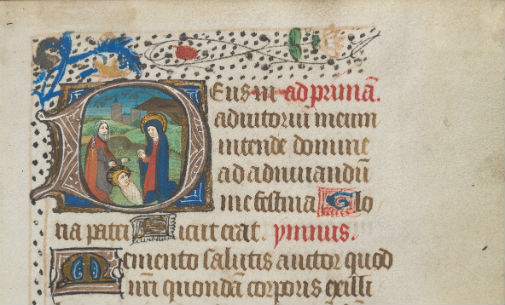 Deus in ad primā.
adiutoriū meum
intende domine
ad adiuvandū
me festina Glo
ria patri Sicut erat. ymnus.
Memento salutis auctor quod
nr̄i quondā corporis ex illi